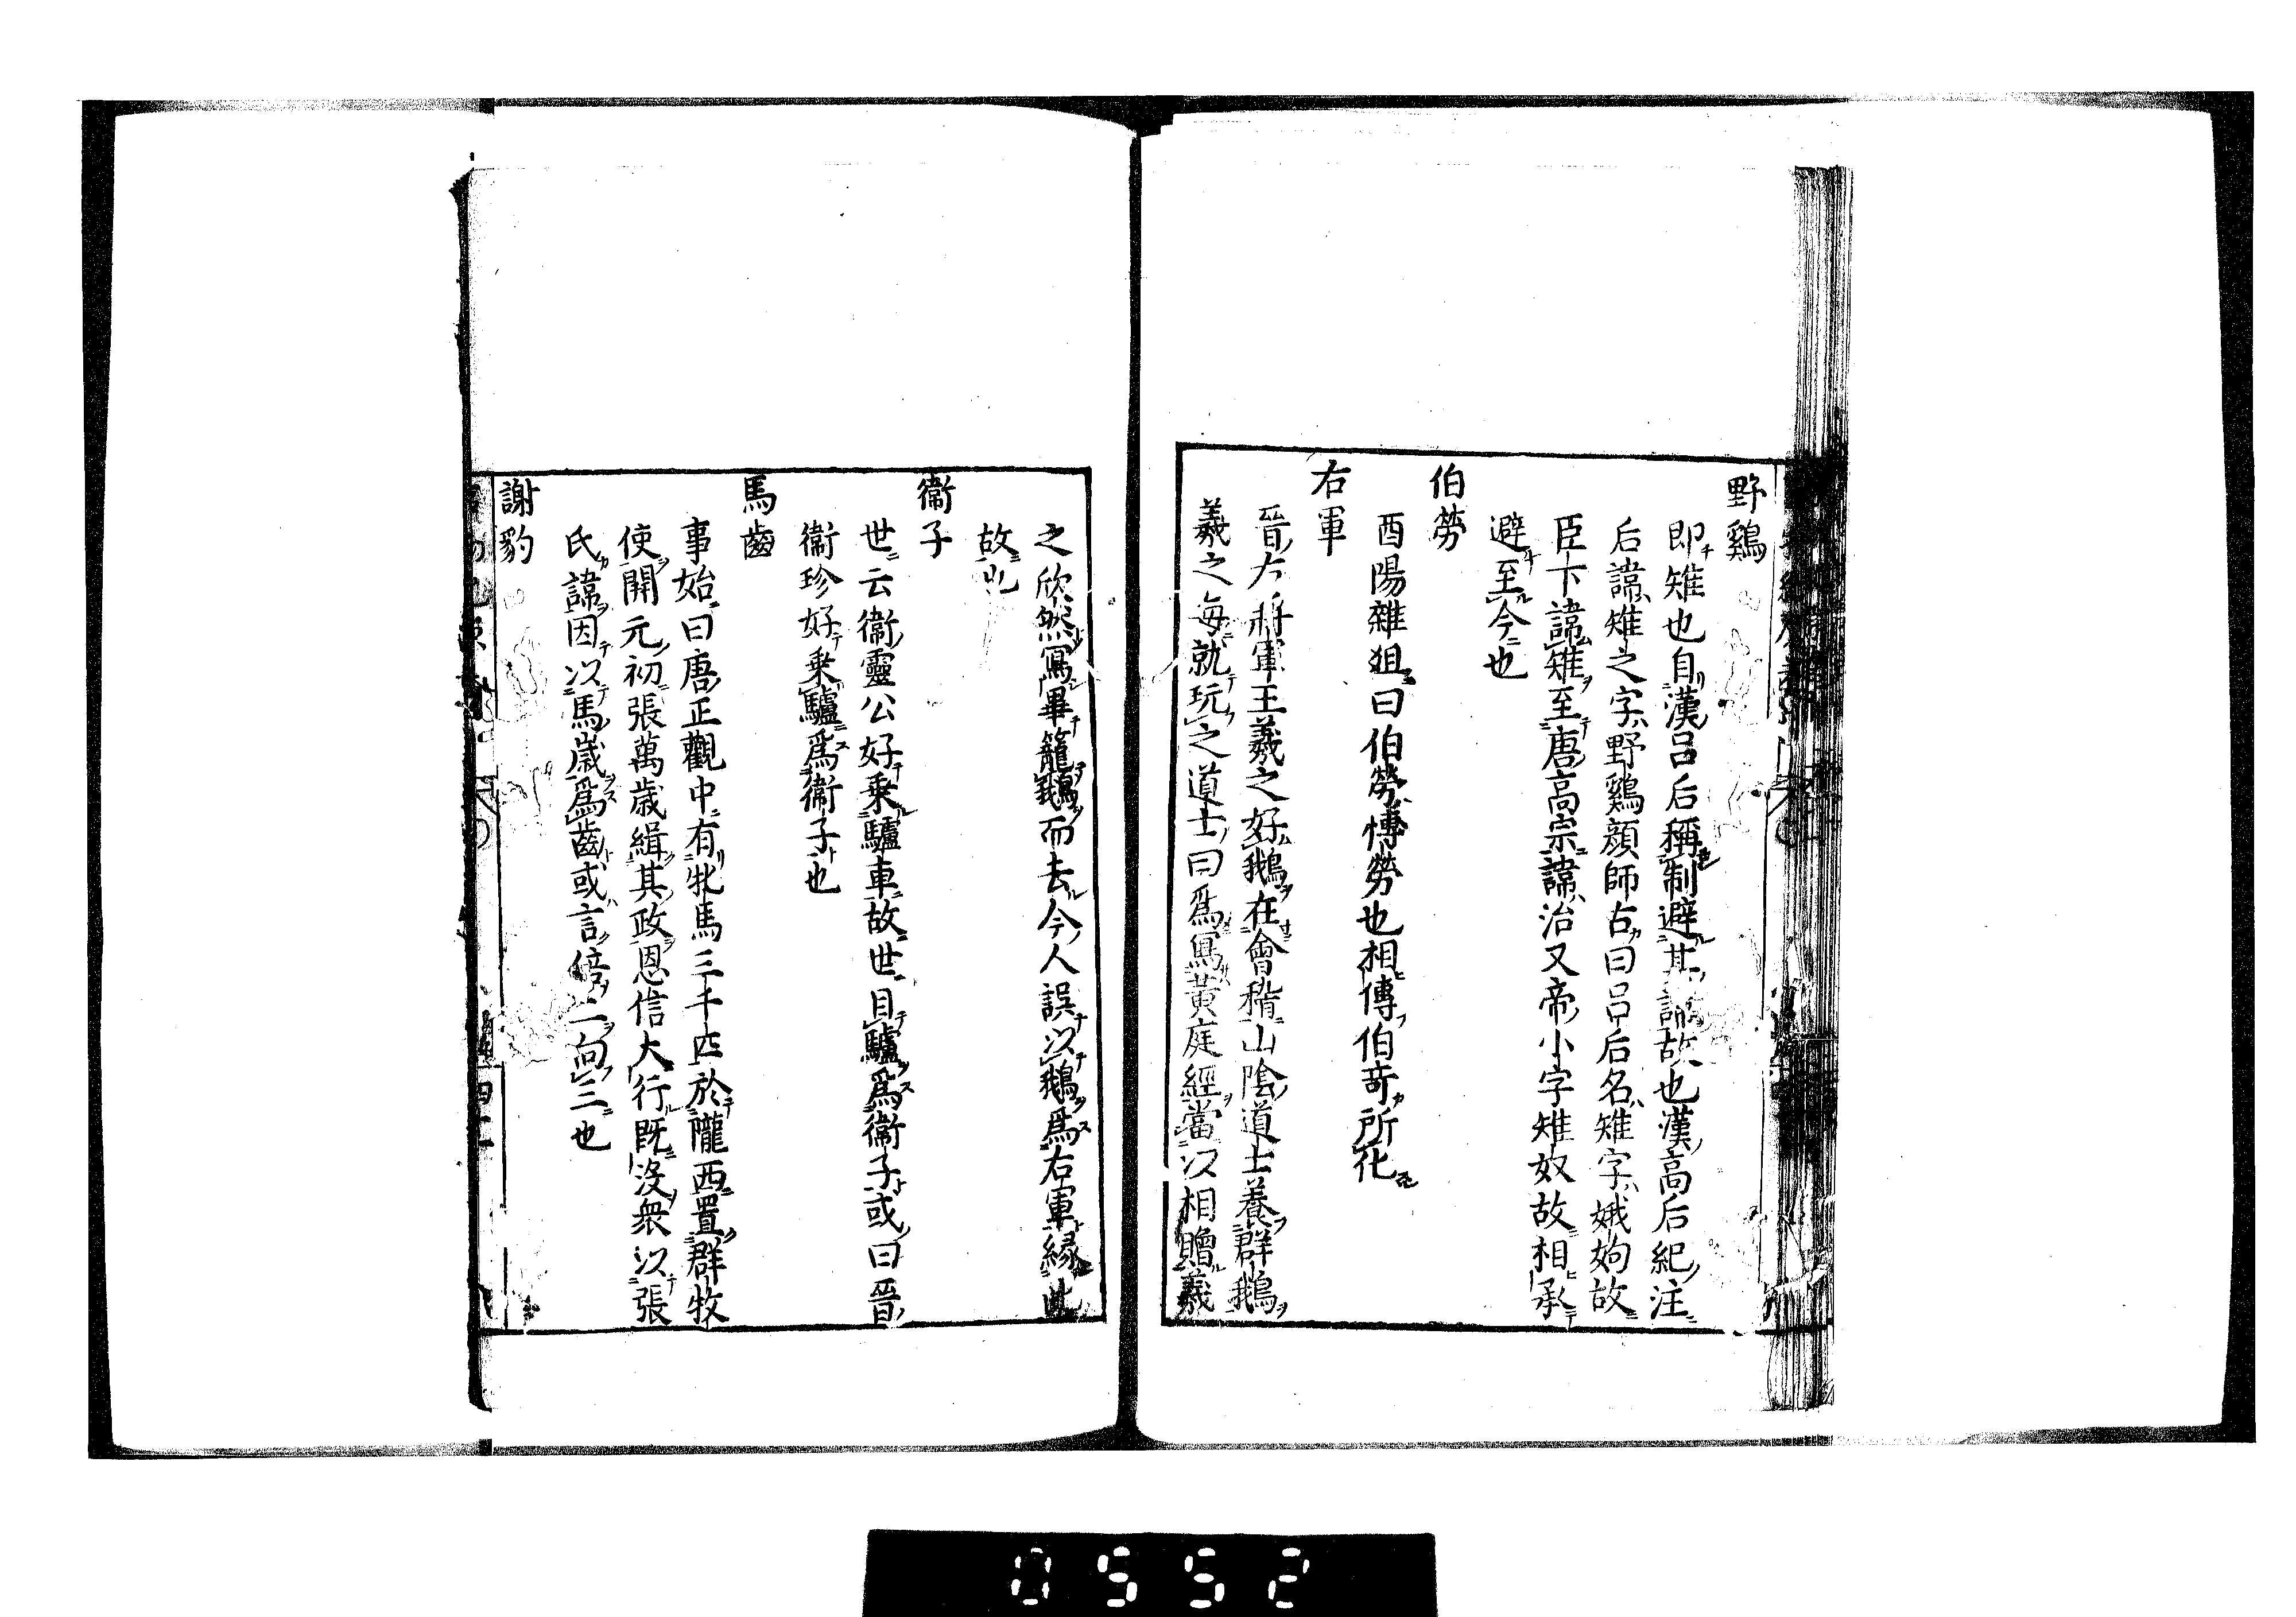 野鷄
即雉也自漢呂后稱制避其諱故也漢高后紀注
后諱雉之字野鷄顔師古曰呂后名雉字娥姁故
臣下諱雉至唐高宗諱治又帝小字雉奴故相承
避至今也
伯勞
酉陽雜俎曰伯勞博勞也相傳伯竒所化
右軍
晉右將軍王羲之好鵝在會稽山陰道士養群鵝
羲之每就玩之道士曰爲寫黃庭經當以相贈羲
之欣然寫畢籠鵝而去今人誤以鵝爲右軍縁此
故也
衞子
世云衞靈公好乗驢車故世目驢爲衞子或曰晉
衞珍好乗驢爲衞子也
馬齒
事始曰唐正觀中有牝馬三千匹於隴西置群牧
使開元初張萬歳緝其政恩信大行既没衆以張
氏諱因以馬歳爲齒或言倍二向三也
謝豹
0552